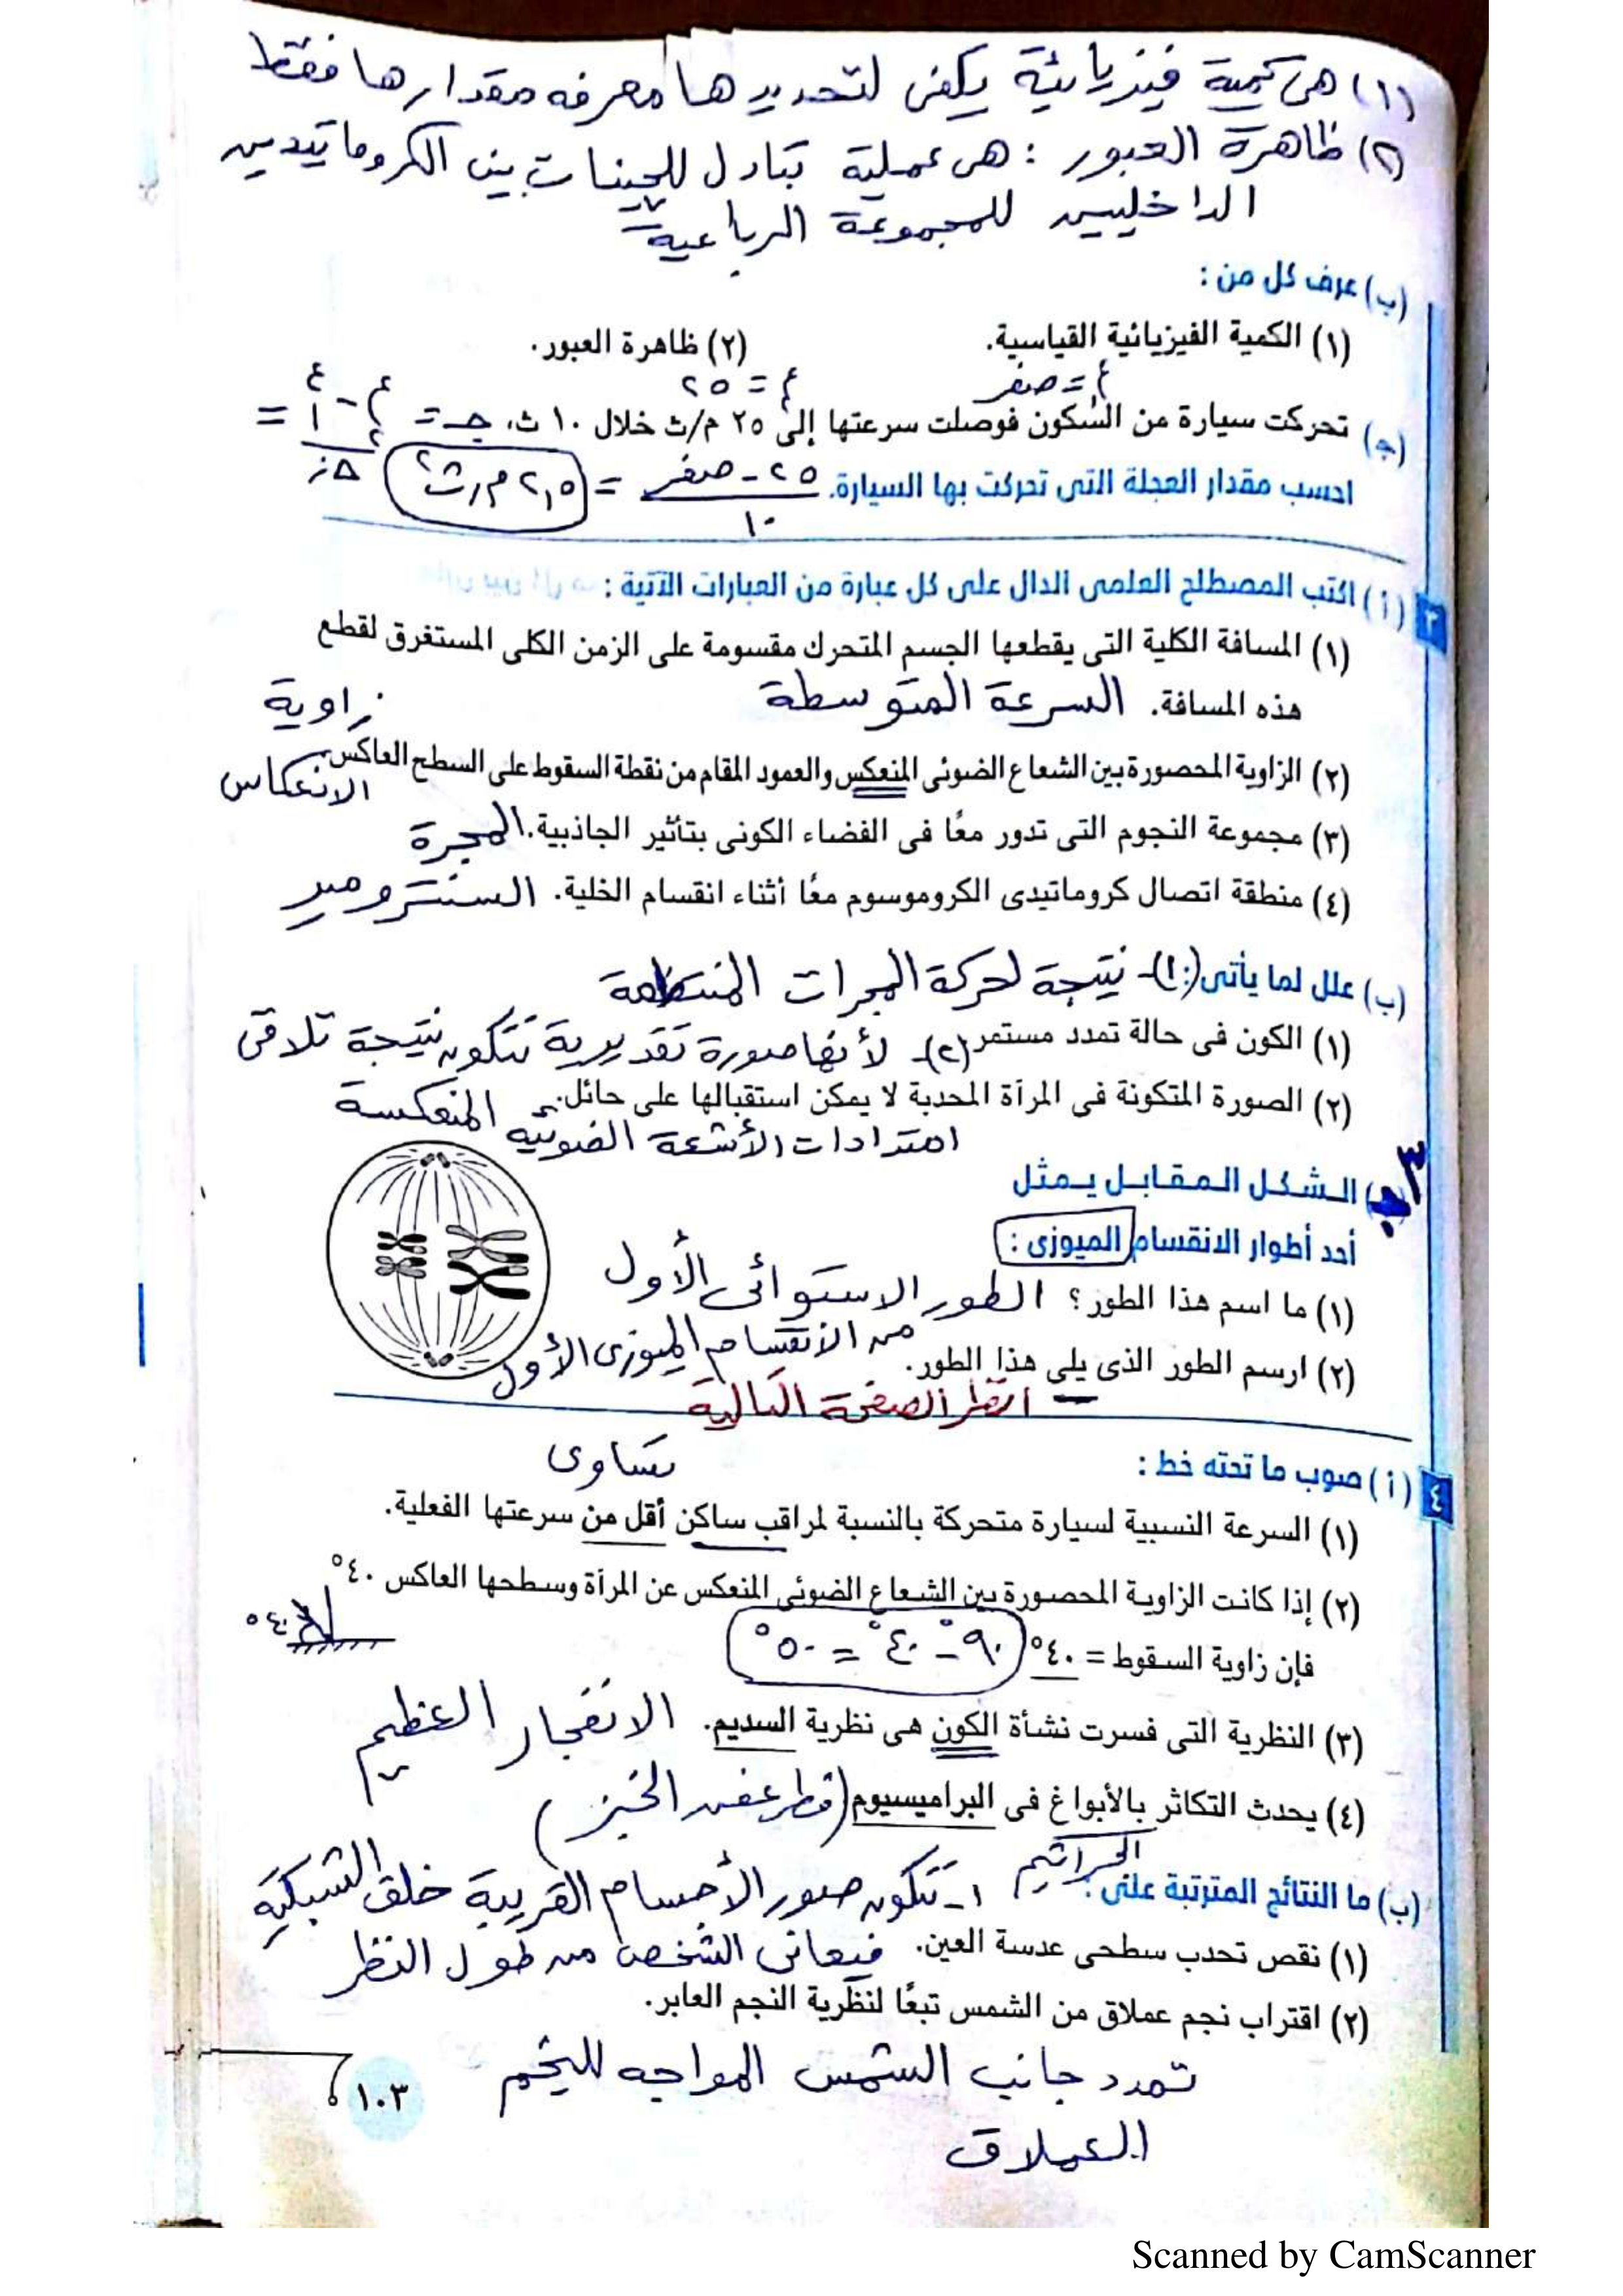 (١) هى كمية فيزيائية يكفى لتحديدها معرفه مقدارها فقط
(٢) ظاهرة العبور : هى عملية تبادل للجينات بين الكروماتيدين
الداخليين للمجموعة الرباعية
(ب) عرف كل من :
(١) الكمية الفيزيائية القياسية.
(٢) ظاهرة العبور.
ع١ = صفر
ع٢ = ٢٥
(جـ) تحركت سيارة من السكون فوصلت سرعتها إلى ٢٥ م/ث خلال ١٠ ث، جـ = ع٢ - ع١ / Δز =
احسب مقدار العجلة التى تحركت بها السيارة. ٢٥ - صفر / ١٠ = ٢,٥ م/ث٢
٣ (أ) اكتب المصطلح العلمى الدال على كل عبارة من العبارات الآتية :
(١) المسافة الكلية التى يقطعها الجسم المتحرك مقسومة على الزمن الكلى المستغرق لقطع
هذه المسافة. السرعة المتوسطة
زاوية
(٢) الزاوية المحصورة بين الشعاع الضوئى المنعكس والعمود المقام من نقطة السقوط على السطح العاكس.
الانعكاس
(٣) مجموعة النجوم التى تدور معًا فى الفضاء الكونى بتأثير الجاذبية. المجرة
(٤) منطقة اتصال كروماتيدى الكروموسوم معًا أثناء انقسام الخلية. السنترومير
(ب) علل لما يأتى : (١)- نتيجة لحركة المجرات المنتظمة
(١) الكون فى حالة تمدد مستمر (٢)- لأنها صورة تقديرية تتكون نتيجة تلاقى
(٢) الصورة المتكونة فى المرآة المحدبة لا يمكن استقبالها على حائل.
امتدادات الأشعة الضوئيه المنعكسة
٣
الشكل المقابل يمثل
أحد أطوار الانقسام الميوزى :
(١) ما اسم هذا الطور؟ الطور الاستوائى الأول
من الانقسام الميوزى الأول
(٢) ارسم الطور الذى يلى هذا الطور.
- انظر الصفحة التالية
٤ (أ) صوب ما تحته خط :
تساوى
(١) السرعة النسبية لسيارة متحركة بالنسبة لمراقب ساكن أقل من سرعتها الفعلية.
(٢) إذا كانت الزاوية المحصورة بين الشعاع الضوئى المنعكس عن المرآة وسطحها العاكس ٤٠°
٤٠°
فإن زاوية السقوط = ٤٠° ٩٠° - ٤٠° = ٥٠°
(٣) النظرية التى فسرت نشأة الكون هى نظرية السديم. الانفجار العظيم
(٤) يحدث التكاثر بالأبواغ فى البراميسيوم (فطر عفن الخبز)
الجراثيم
(ب) ما النتائج المترتبة على : ١- تتكون صور الأجسام القريبة خلف الشبكيه
(١) نقص تحدب سطحى عدسة العين. فيعانى الشخص من طول النظر
(٢) اقتراب نجم عملاق من الشمس تبعًا لنظرية النجم العابر.
تمدد جانب الشمس المواجه للنجم
العملاق
١٠٣
Scanned by CamScanner